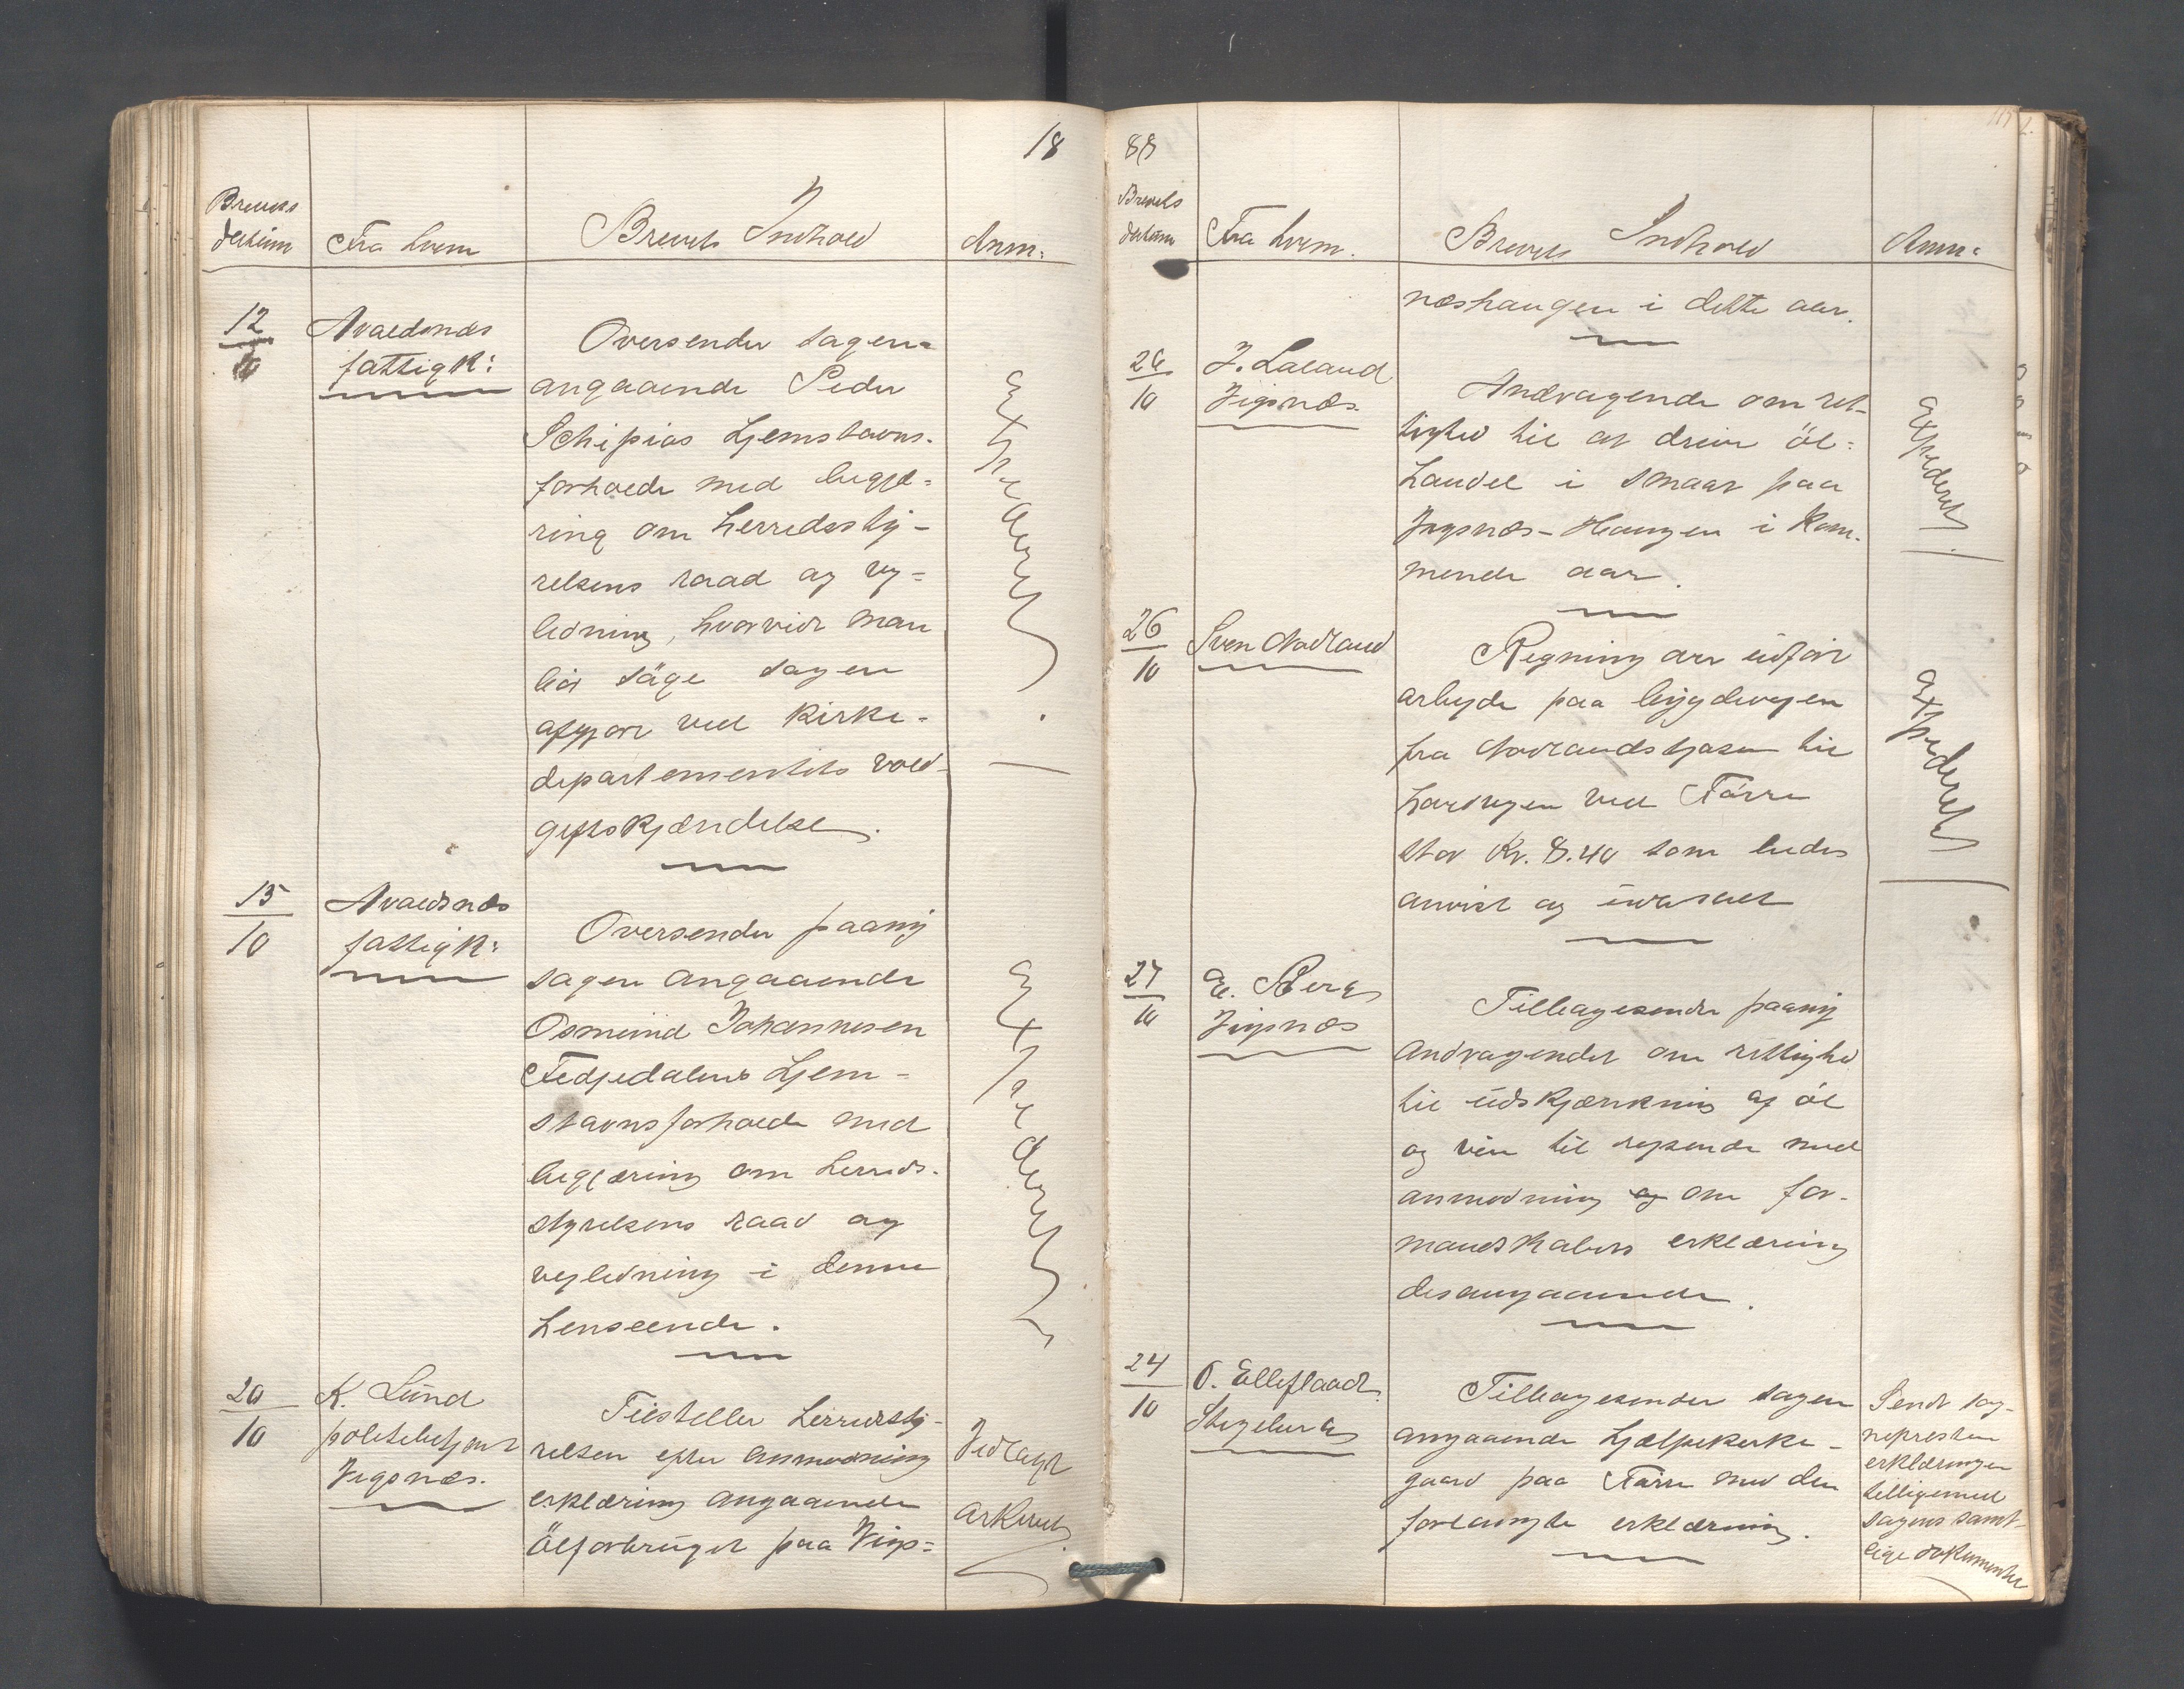 18
Brevets
datum
Fra hvem
Brevets Indhold
Anm:
12/10
Avaldsnæs
fattigk:
Oversender sagen
angaaende Peder
Schipias hjemstavns-
forholde med begjæ-
ring om herredssty-
relsens raad og vej-
ledning, hvorvidt man
bør søge sagen
afgjort ved Kirke-
departementets vold-
giftskjændelse.
Expederet.
15/10
Avaldsnæs
fattigk:
Oversender paany
sagen angaaende
Osmund Johannesen
Fedjedalens hjem-
stavnsforholde med
begjæring om herreds-
styrelsens raad og
vejledning i denne
henseende.
Expederet
20/10
K. Lund
politibetjent
Vigsnæs.
Tilstiller herredssty-
relsen efter anmodning
erklæring angaaende
Ölforbruget paa Vigs-
Vedlagt
arkivet
88
Brevets
datum
Fra hvem.
Brevets Indhold
Anm:
næshaugen i dette aar.
26/10
J. Laland
Vigsnæs.
Andragende om ret-
tighed til at drive öl-
handel i smaat paa
Vigsnæs-Haugen i kom-
mende aar.
expederet
26/10
Sven Nodland
Regning over udført
arbeyde paa bygdevejen
fra Nodlandstjasen til
hovedvejen ved Førre
stor Kr. 8.40 som bedes
anvist og udbetalt
expederet
27/10
E. Berg
Vigsnæs
Tilbagesender paany
andragendet om rettighed
til udskjænkning af öl
og vin til rejsende med
anmodning og om for-
mandskabets erklæring
desangaaende.
24/10
O. Elleflaadt
Skjoldevig
Tilbagesender sagen
angaaende hjælpekirke-
gaard paa Førre med den
forlangte erklæring.
Sendt sog-
nepresten
erklæringen
tilligemed
sagens samt-
lige dokumenter